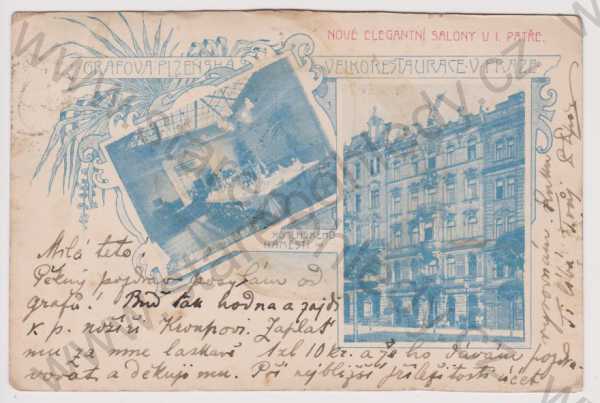 NOVÉ ELEGANTNÍ SALONY V I. PATŘE.
GRAFOVA PLZEŇSKÁ VELKORESTAURACE · V PRAZE
KOMENSKÉHO
NÁMĚSTÍ
Milá teto!
Pěkný pozdrav posýlám od
grafů! Buď tak hodna a zajdi
k p. nožíři Kroupovi. Zaplať
mu za mne laskavě 1zl 10 kr. a že ho dávám pozdra-
vovat a děkuji mu. Při nejbližší příležitosti účet
vyrovnám